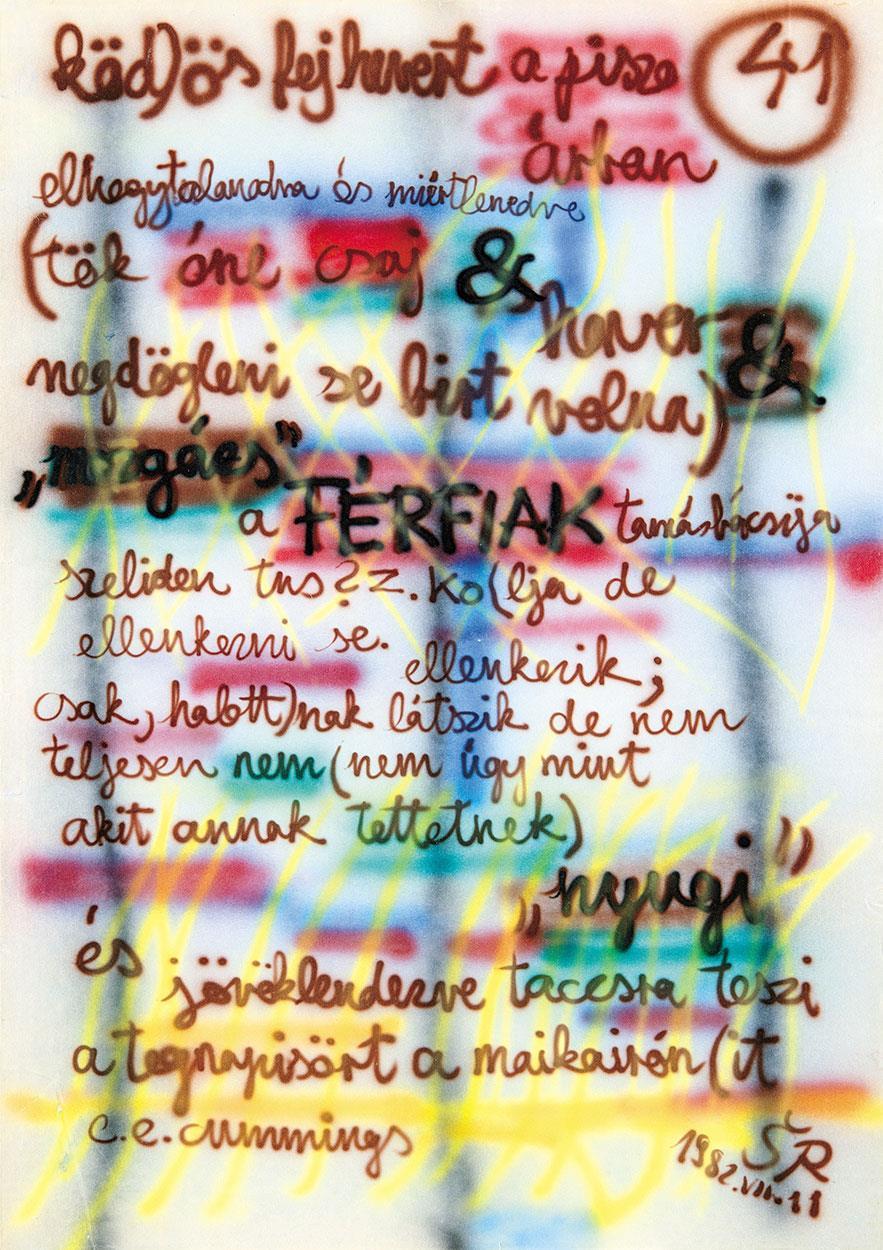 köd)ös fej hevert a pisze 41
árban
elhagytalanodva és miértlenedve
(tök óne csaj &
haver &
megdögleni se birt volna)
„mozgács"
a FÉRFIAK tamásbácsija
szeliden tus?z.ko(lja de
ellenkezni se.
ellenkezik;
csak, halott)nak látszik de nem
teljesen nem (nem úgy mint
akit annak tettetnek)
„nyugi"
és jövéklendezve taccsra teszi
a tegnapisört a maikairón (it
c.e. cummings
ŠR
1982.VII.11